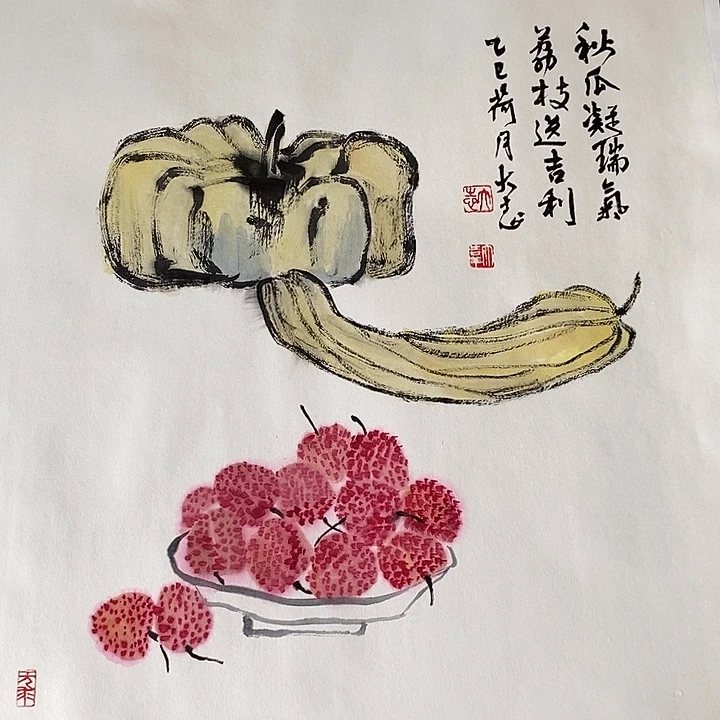 秋瓜凝瑞氣
荔枝送吉利
乙巳荷月大志
大志